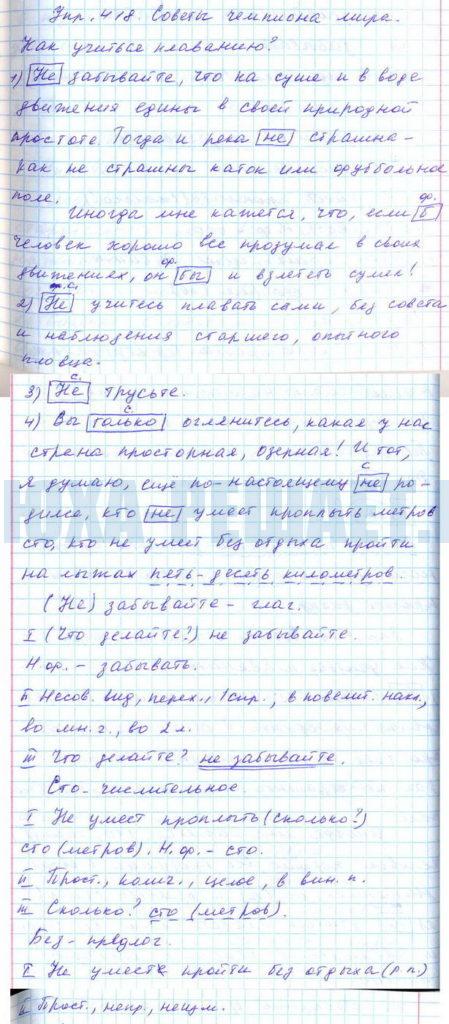 Упр. 418. Советы чемпиона мира.
Как учиться плаванию?
1) Не забывайте, что на суше и в воде
движения едины в своей природной
простоте. Тогда и река не страшна –
как не страшны каток или футбольное
поле.
ф.
Иногда мне кажется, что, если б
человек хорошо все продумал в своих
ф.
движениях, он бы и взлететь сумел!
с.
2) Не учитесь плавать сами, без совета
и наблюдения старшего, опытного
пловца.
с.
3) Не трусьте.
с.
4) Вы только оглянитесь, какая у нас
страна просторная, озерная! И тот,
с
я думаю, ещё по-настоящему не ро-
дился, кто не умеет проплыть метров
сто, кто не умеет без отдыха пройти
на лыжах пять-десять километров.
(Не) забывайте – глаг.
I (Что делайте?) не забывайте.
Н.ф. – забывать.
II Несов. вид, перех., I спр., в повелит. накл.,
во мн. ч., во 2 л.
III Что делайте? не забывайте.
Сто – числительное.
I Не умеет проплыть (сколько?)
сто (метров). Н.ф. – сто.
II Прост., колич., целое, в вин. п.
III Сколько? сто (метров).
Без – предлог.
I Не умеет пройти без отдыха (Р.п.)
II Прост., непр., неизм.